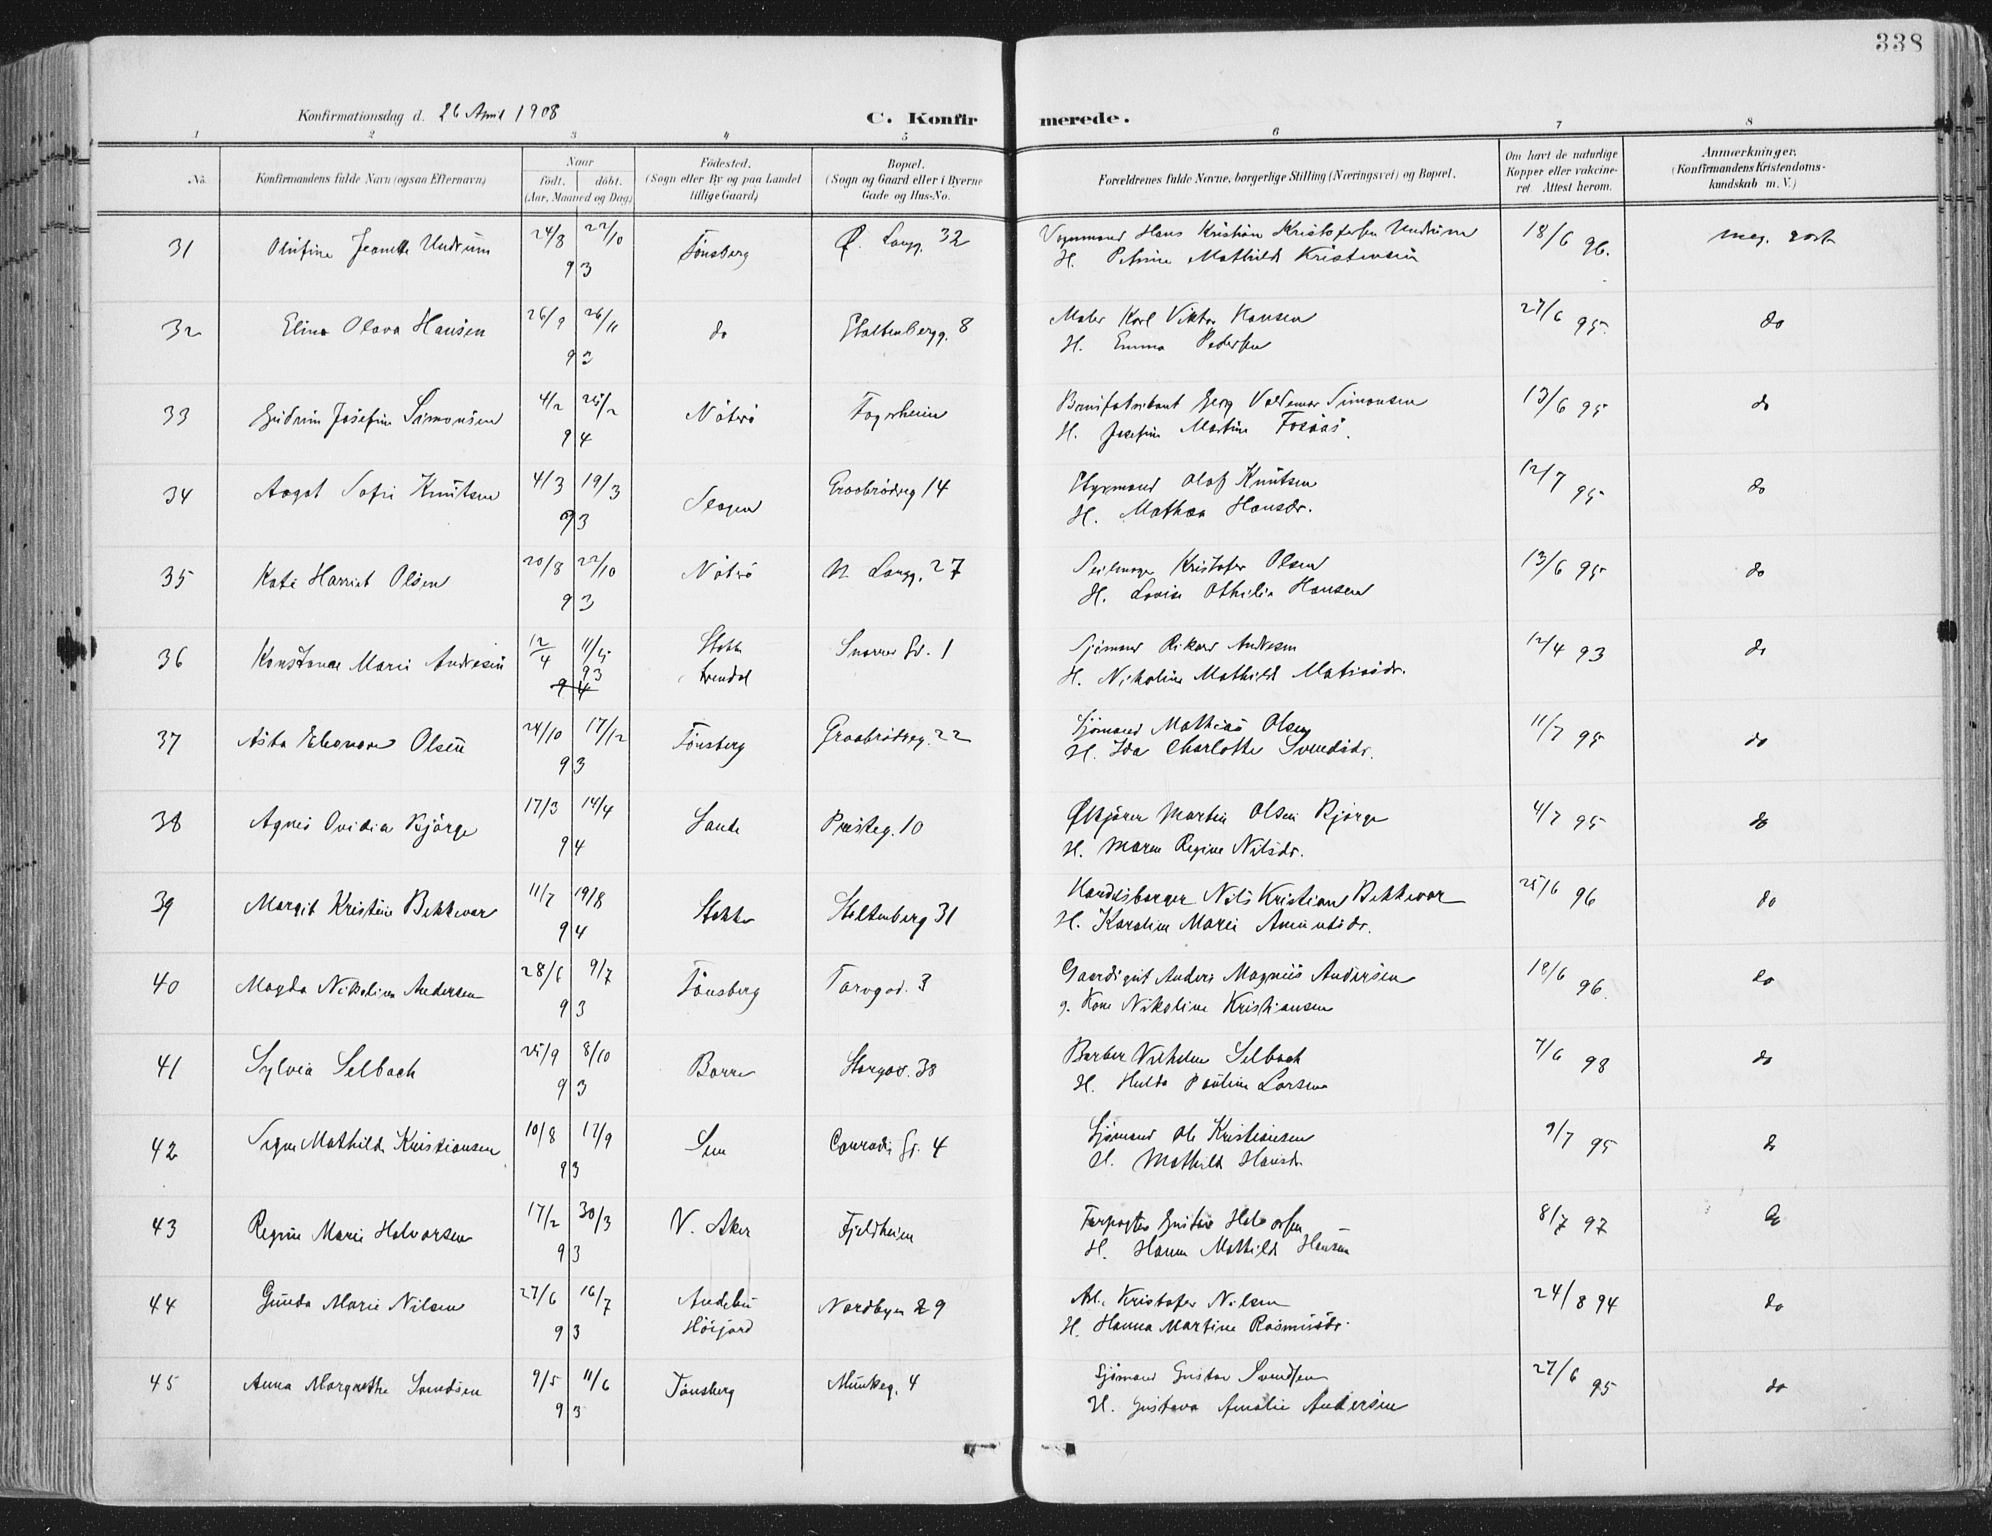 338
Konfirmationsdag d. 26 April 1908
C. Konfirmerede.
1 2 3 4 5 6 7 8
No.
Konfirmandens fulde Navn (ogsaa Efternavn)
Naar
født. døbt.
(Aar, Maaned og Dag)
Fødested.
(Sogn eller By og paa Landet
tillige Gaard)
Bopæl.
(Sogn og Gaard eller i Byerne
Gade og Hus-No.
Forældrenes fulde Navne, borgerlige Stilling (Næringsvei) og Bopæl.
Om havt de naturlige
Kopper eller vakcine-
ret Attest herom.
Anmærkninger.
(Konfirmandens Kristendoms-
kundskab m. V.)
31 Olufine Jeanette Undrum 24/8 22/10 93 Tønsberg Ø. Langg. 32 Vognmand Hans Kristian Kristofersen Undrum 18/6 96. meg. godt
H. Petrine Mathilde Kristensen
32 Elina Olava Hansen 26/9 26/11 93 do Stoltenbergg. 8 Maler Karl Viktor Hansen 27/6 95. do
H. Emma Pedersen
33 Gudrun Josefine Simonsen 4/2 25/2 94 Nøterø Fagerheim Georg Valdemar Simonsen 13/6 95 do
H. Josefine Martine
34 Aagot Sofie Knutsen 4/3 19/3 93 Slagen Graabrødreg 14 Olaf Knutsen 12/7 95 do
H. Mathea Hansdr.
35 Kate Harriet Olsen 20/8 22/10 93 Nøterø N. Langg. 27 Seilmager Kristofer Olsen 13/6 95 do
H. Lovise Othilie Hansen
36 Konstanse Marie Andresen 12/4 11/5 93 94 Stokke Arendal Snorres Gd. 1 Sjømand Rikard Andresen 12/4 93 do
H. Nikoline Mathilde Matisdr.
37 Asta Eleonore Olsen 24/10 17/12 93 Tønsberg Graabrødreg. 22 Sjømand Mathias Olsen 11/7 95 do
H. Ida Charlotte Svendsdr.
38 Agnes Ovidia Bjørge 17/3 14/4 94 Sande Presteg. 10 Martin Olsen Bjørge 4/7 95 do
H. Maren Regine Nilsdr.
39 Margit Kristine Bekkevar 11/7 19/8 94 Stokke Stoltenberg 31 Handelsborger Nils Kristian Bekkevar 25/6 96 do
H. Karoline Marie Amundsdr.
40 Magda Nikoline Andersen 28/6 9/7 93 Tønsberg Torvgd. 3 Gaardsgut Anders Magnus Andersen 18/6 96. do
g. Kone Nikoline Kristiansen
41 Sylvia Selbach 25/9 8/10 93 Borre Storgad. 38 Barber Vilhelm Selbach 7/6 98 do
H. Hulda Pauline Larsen
42 Signe Mathilde Kristiansen 10/8 17/9 93 Sem Conradis Gd. 4 Sjømand Ole Kristiansen 9/7 95 do
H. Mathilde Hansdr.
43 Regine Marie Halvorsen 17/2 30/3 93 V. Aker Fjeldheim Forpagter Gustav Halvorsen 8/7 97 do
H. Hanne Mathilde Hansen
44 Gunda Marie Nilsen 27/6 16/7 93 Andebu Høijord Nordbyen 29 Arb. Kristofer Nilsen 24/8 94 do
H. Hanna Martine Rasmusdr.
45 Anna Margrethe Svendsen 9/5 11/6 93 Tønsberg Munkeg. 4 Sjømand Gustav Svendsen 27/6 95 do
H. Gustava Amalie Andersen